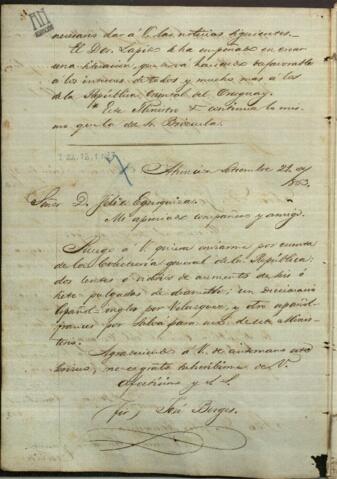 necesario dar á V. las noticias siguientes.
El Dor. Lopez se ha empeñado en crear
una situacion, que será desfavorable
á los intereses de todos y mucho mas á los
de la República Oriental del Uruguay.
Este Ministro &. continua lo mis
mo que la del Sr. Brizuela.
Setiembre 21 de
1863.
Señor D. Felix Eguzquiza.
Mi apreciado compañero y amigo.
Ruego á V. quiera enviarme por cuenta
de la Colecturia general de la República
dos lentes ó vidrios de aumento de seis ó
siete pulgadas de diametro; un Diccionario
Español-ingles por Velazquez, y otro español
frances por Salvá para uso de este Minis
terio.
Agradeciendo á V. de antemano este
servicio, me es grato subscribirme de V.
afectisimo y S. S.
fir) José Berges.